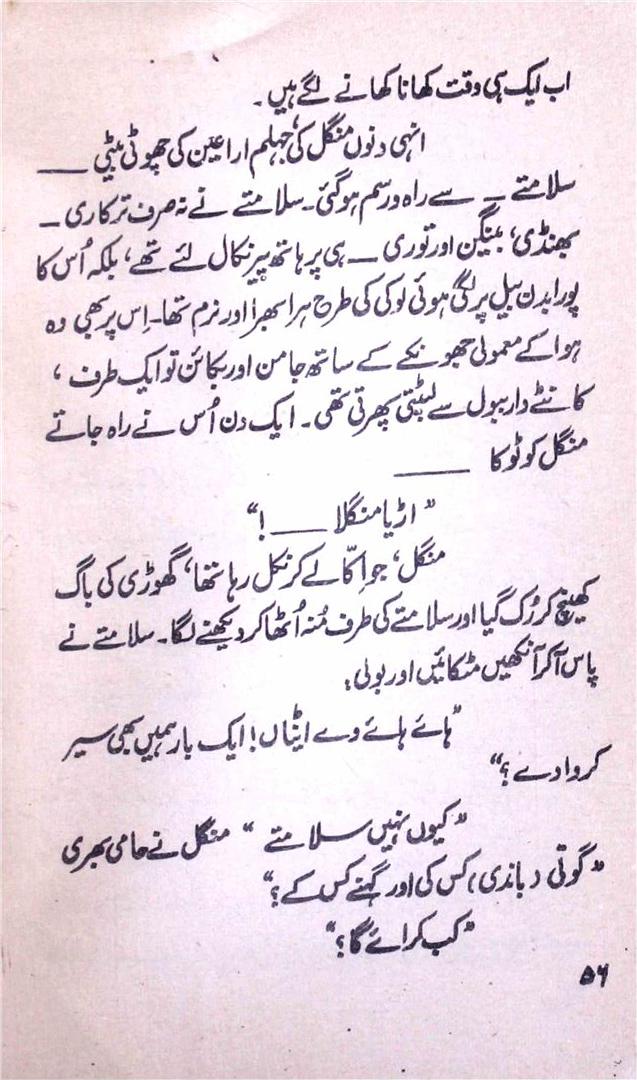 اب ایک ہی وقت کھانا کھانے لگے ہیں۔
انہی دنوں منگل کی جہلم ارا عین کی چھوٹی بیٹی ——
سلامتے — سے راہ ورسم ہوگئی۔ سلامتے نے نہ صرف ترکاری —
بھنڈی، بینگن اور توری — ہی پر ہاتھ پیر نکال لئے تھے، بلکہ اُس کا
پورا بدن بیل پر لگی ہوئی لوکی کی طرح ہرا بھرا اور نرم تھا۔ اِس پر بھی وہ
ہوا کے معمولی جھونکے کے ساتھ جامن اور بکائن تو ایک طرف،
کانٹے دار ببول سے لپٹتی پھرتی تھی۔ ایک دن اُس نے راہ جاتے
منگل کو ٹوکا ——
”اڑیا منگلا ——!“
منگل، جو اِکّا لے کر نکل رہا تھا، گھوڑی کی باگ
کھینچ کر رُک گیا اور سلامتے کی طرف مُنہ اُٹھا کر دیکھنے لگا۔ سلامتے نے
پاس آکر آنکھیں مٹکائیں اور بولی:
”ہائے ہائے وے ایٹاں! ایک بار ہمیں بھی سیر
کروا دے؟“
”کیوں نہیں سلامتے“ منگل نے حامی بھری
”گوتی (باندی) کس کی اور گہنے کس کے؟“
”کب کرائے گا؟“
۵۶